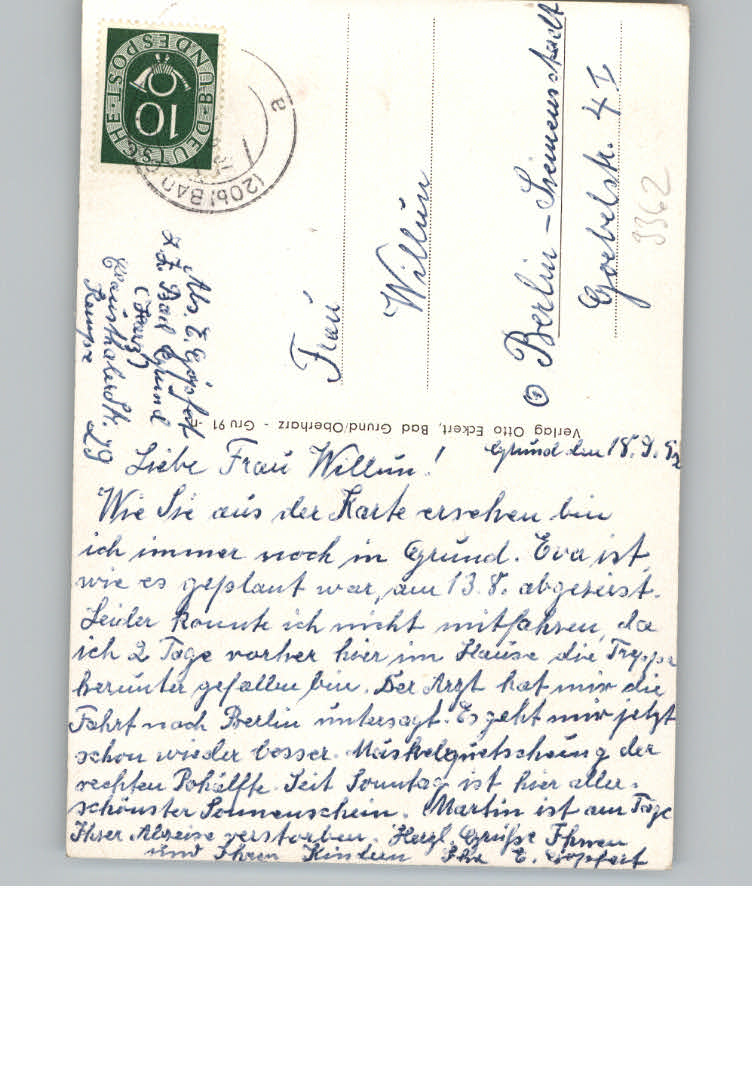 DEUTSCHE BUNDESPOST
10
(20b) BAD
a
Abs. E. Göpfert
z.Z. Bad Grund
(Harz)
Clausthalerstr. 29
Kempe
Frau
Willun
Berlin - Siemensstadt
Goebelstr. 4 I
3362
Verlag Otto Eckert, Bad Grund/Oberharz - Gru 91
Grund den 18.9.52
Liebe Frau Willun!
Wie Sie aus der Karte ersehen bin
ich immer noch in Grund. Eva ist,
wie es geplant war, am 13.8. abgereist.
Leider konnte ich nicht mitfahren, da
ich 2 Tage vorher hier im Hause die Treppe
herunter gefallen bin. Der Arzt hat mir die
Fahrt nach Berlin untersagt. Es geht mir jetzt
schon wieder besser. Muskelquetschung der
rechten Pohälfte. Seit Sonntag ist hier aller-
schönster Sonnenschein. Martin ist am Tage
Ihrer Abreise verstorben. Herzl. Grüße Ihnen
und Ihren Kindern Ihre E. Göpfert